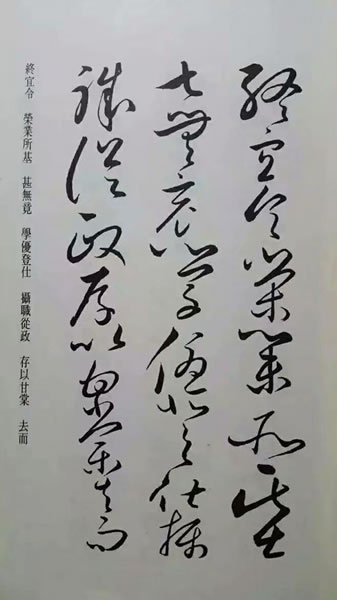 終宜令榮業所基
甚無竟學優登仕攝
職從政存以甘棠去而
終宜令　榮業所基　甚無竟　學優登仕　攝職從政　存以甘棠　去而